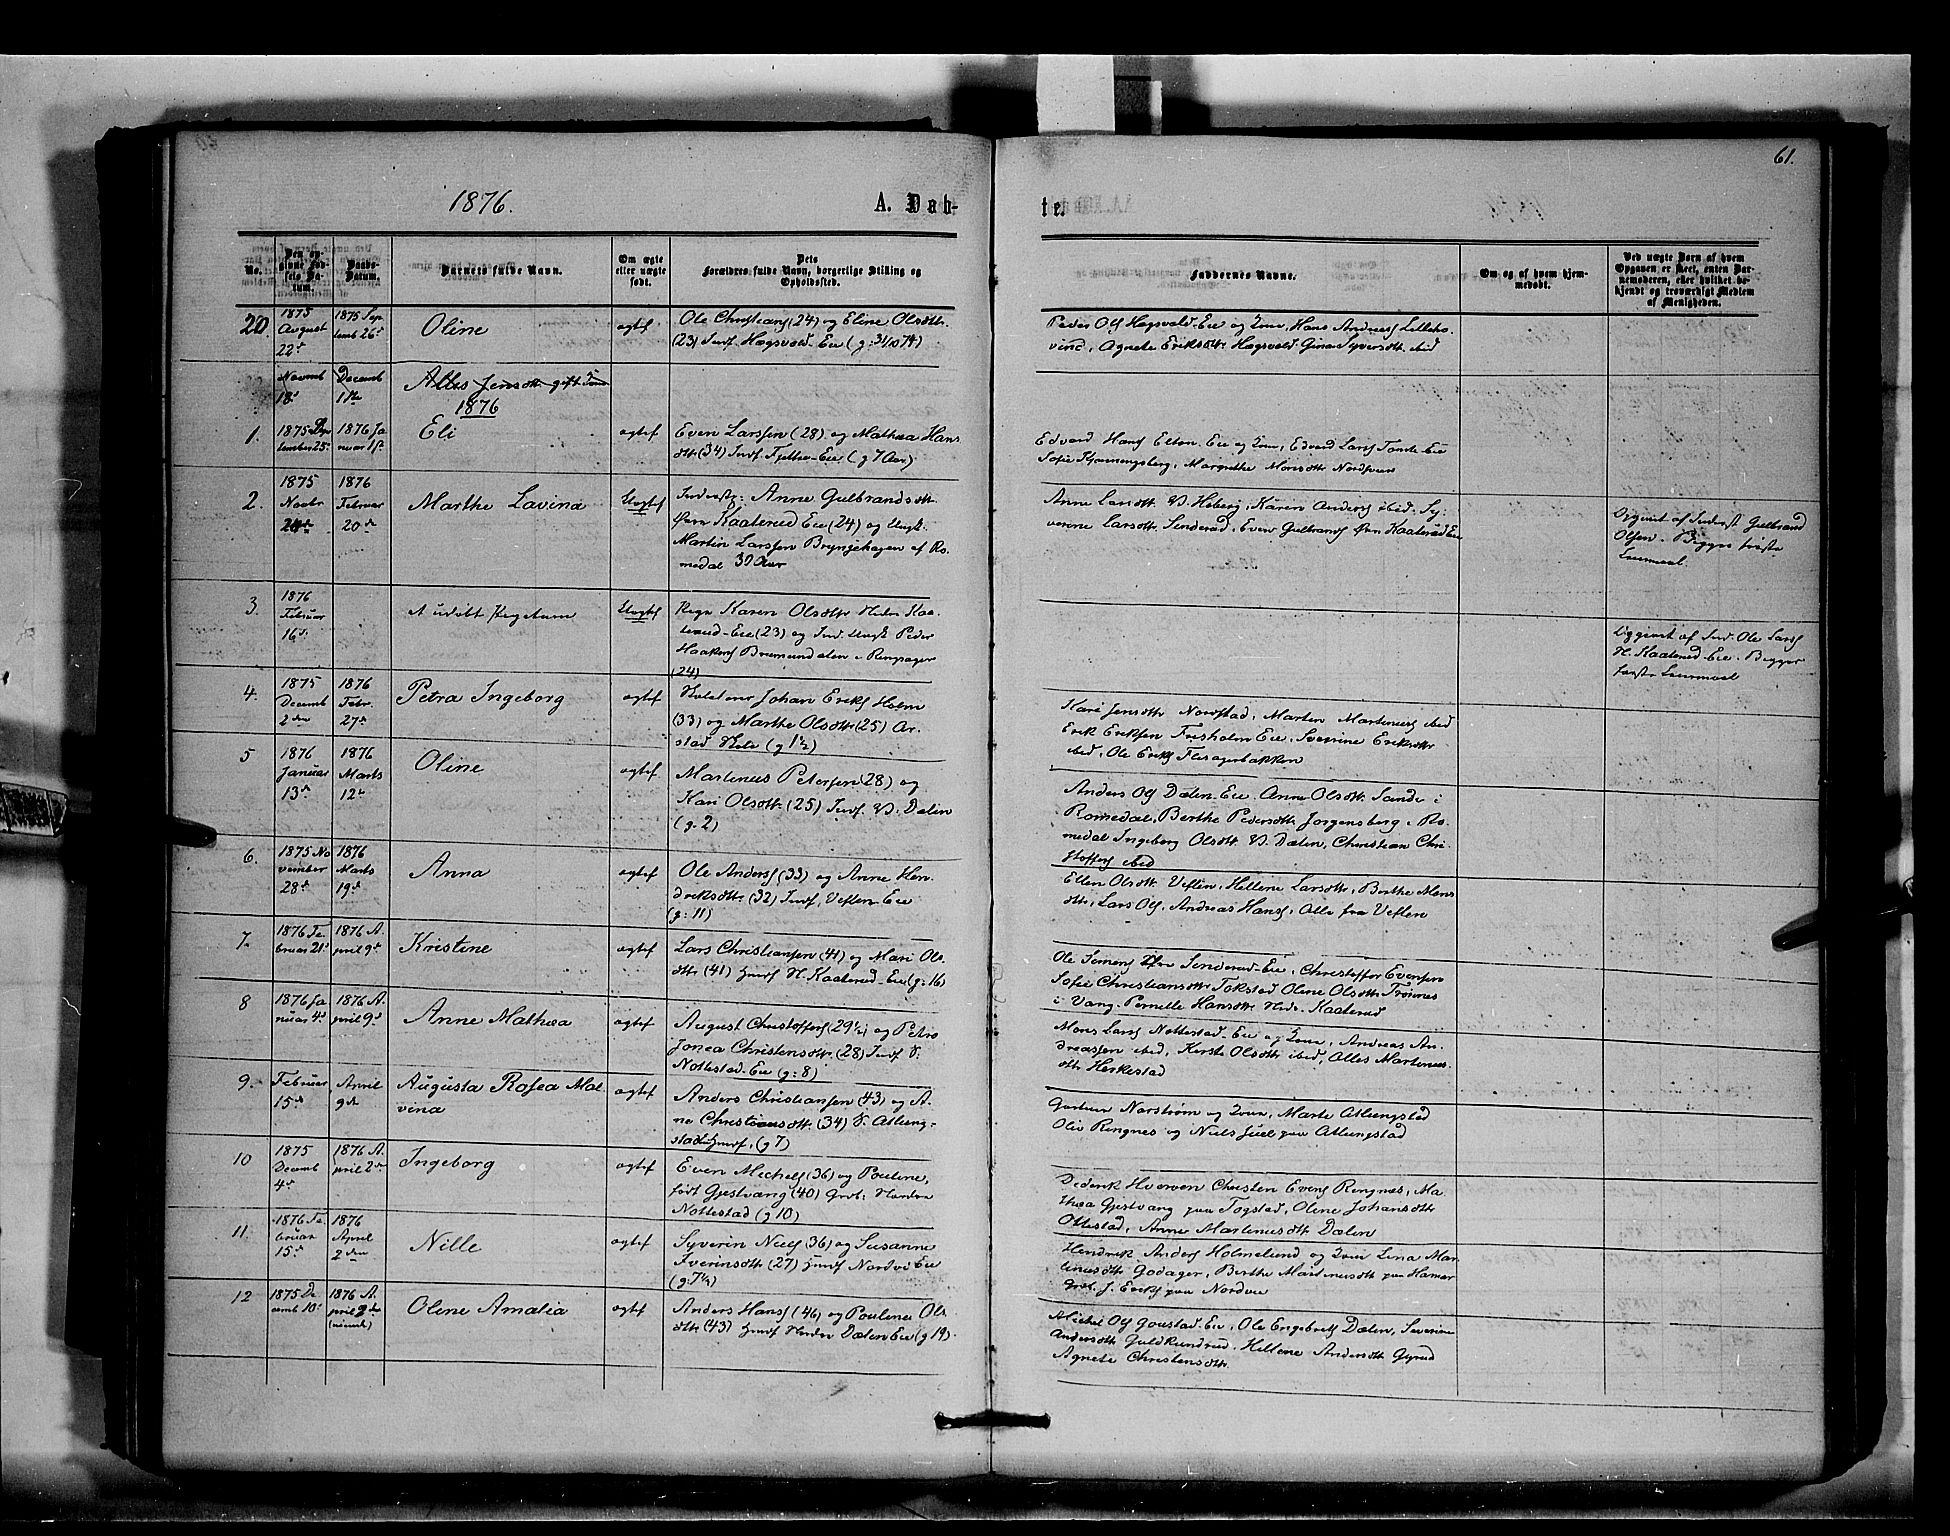 61.
1876.
A. Døb-
te.
No.
Den opgivne Fødsels Datum.
Daabs-Datum.
Barnets fulde Navn.
Om ægte eller uægte født.
Dets Forældres fulde Navn, borgerlige Stilling og Opholdssted.
Faddernes Navne.
Om og af hvem hjemmedøbt.
Ved uægte Børn af hvem Opgaven er skeet, enten Barnemoderen, eller hvilket bekjendt og troværdigt Medlem af Menigheden.
20.
1875
August
22d
1875 Sep
temb 26d
Oline
ægtef
Ole Christians (24) og Eline Olsdttr.
(23) Indf Hægsvold-Eie (g: 31/10 74)
Peder Ols Hægsvold-Eie og Kone, Hans Andreas Lilleho
vind, Agnete Eriksdttr Hægsvold. Gina Syversdtt ibid
Novemb
18d
Decemb
Jensdtt gift
1876
1.
1876 Ja
nuar 1st
Eli
ægtef
Even Larssen (28) og Mathea Hans
dtt. (34) Indf. Eie (g 7 Aar)
Edvard Hans Elton Eie og Kone, Edvard Lars Tomte Eie
Sofie Margrethe
2.
1875
Novbr
1876
Februar
20de
Marthe Lavina
Uægtef
Anne Gulbrandsdtt.
Øvre Kaaterud Eie (24) og Ungk.
Martin Larssen Bryngehagen af Ro
medal 30 Aar
Anne Larsdtt. V. Hiberg, Karen Anders ibid. Sy
verine Larsdtt. Sinderud, Even Gulbrands Øvre Kaaterud Eie
Opgivet af Inderst Gulbrand
Olsen. Begges første
Leiermaal
3.
1876
Februar
16d
et udøbt Pigebarn
Uægtef
Pige Karen Olsdttr Nedre Kaa
terud-Eie (23) og Ind. Ungk Peder
Haakens Brumunddalen i Ringsager
(24)
Opgivet af Ind. Ole Lars
N. Kaaterud-Eie. Begges
første Leiermaal
4.
1875
Decemb
2den
1876
Febr.
27d
Petra Ingeborg
ægtef
Johan Eriks Holm
(33) og Marthe Olsdttr (25) Ar
stad (g 1½)
Kari Jensdtt Nordstad, Marten Martinius ibid
Erik Eriksen Fresholm Eie, Severine Eriksdttr
ibid, Ole Eriks Flisagerbakken
5
1876
Januar
13d
1876
Marts
12te
Oline
ægtef
Martinus Petersen (28) og
Kari Olsdtt. (25) Indf V. Dælin
(g. 2)
Anders Ols Dælen-Eie. Anne Olsdtt. Sande i
Romedal, Berthe Pedersdtt Jorgensberg i Ro
medal Ingeborg Olsdtt V. Dælin, Christian Chri
stoffers ibid
6.
1875 No
vember
28d
1876
Marts
19d
Anna
ægtef
Ole Anders (33) og Anne Hen
driksdtt. (32) Indf, Veflen Eie
(g: 11)
Ellen Olsdtt Veflen, Hellene Larsdtt., Berthe Mons
dtt., Lars Ols, Andreas Hans, Alle fra Veflen
7.
1876 Fe
bruar 21d
1876 A
pril 9d
Kristine
ægtef
Lars Christiansen (41) og Mari Ols
dtt (41) Huusf N. Kaaterud-Eie (g: 16)
Ole Simens Øvre Sinderud-Eie, Christoffer Evensen
Sofie Christiansdttr Tokstad Oline Olsdtt Trøimes
i Vang. Pernille Hansdttr Nedr. Kaaterud
8
1876 Ja
nuar 4d
1876 A.
pril 9d
Anne Mathea
ægtef
August Christoffers (29½) og Petro
Jonea Christensdtt. (28) Indf S.
Nottestad-Eie (g: 8)
Mons Lars Nottestad-Eie og Kone, Andreas An
dreassen ibid, Kersti Olsdtt ibid, Alles Martinus
dtt Herkestad
9.
Februar
15d
April
9d
Augusta Rosea Mal
vina
ægtef
Anders Christiansen (43) og A.
ne Christiansdtt (34) S. Atlung-
stad Huusf. (g 7)
Norstrøm og Kone, Marte Atlungstad
Oliv Ringnes og Niels Juel paa Atlungstad
10
1875
Decemb
4d
1876 A.
pril 2d
Ingeborg
ægtef
Even Michels (36) og Pouline,
født Gjestvang (40) Grb. Nordre
Nottestad (g 10)
Diderik Hverven Christen Evens Ringnes, Ma
thea Gjestvang paa Togstad, Oline Johansdtt
Ottestad, Anne Martinusdtt Dælin
11.
1876 Fe
bruar
15d
1876
April
2den
Nille
ægtef
Syverin Niels (36) og Susanne
Iverinsdtt (27) Huusf Nordvi Eie
(g: 7½)
Hendrik Anders Holmelund og Kone Lina Mar
tinusdtt Godager, Berthe Martinusdtt paa Hamar
Grb. J. Eriks paa Nordvie
12
1875 De
cemb 10d
1876 A.
pril 2den
Oline Amalia
ægtef
Anders Hans (46) og Pouline Ols
dtt (43) Huusf Nordre Dælen Eie (g 19).
Michel Ols Goustad-Eie, Ole Engebrets Dælin, Severine
Andersdtt Guldkundrud, Hellene Andersdtt Gyrud
Agnete Christensdtt.